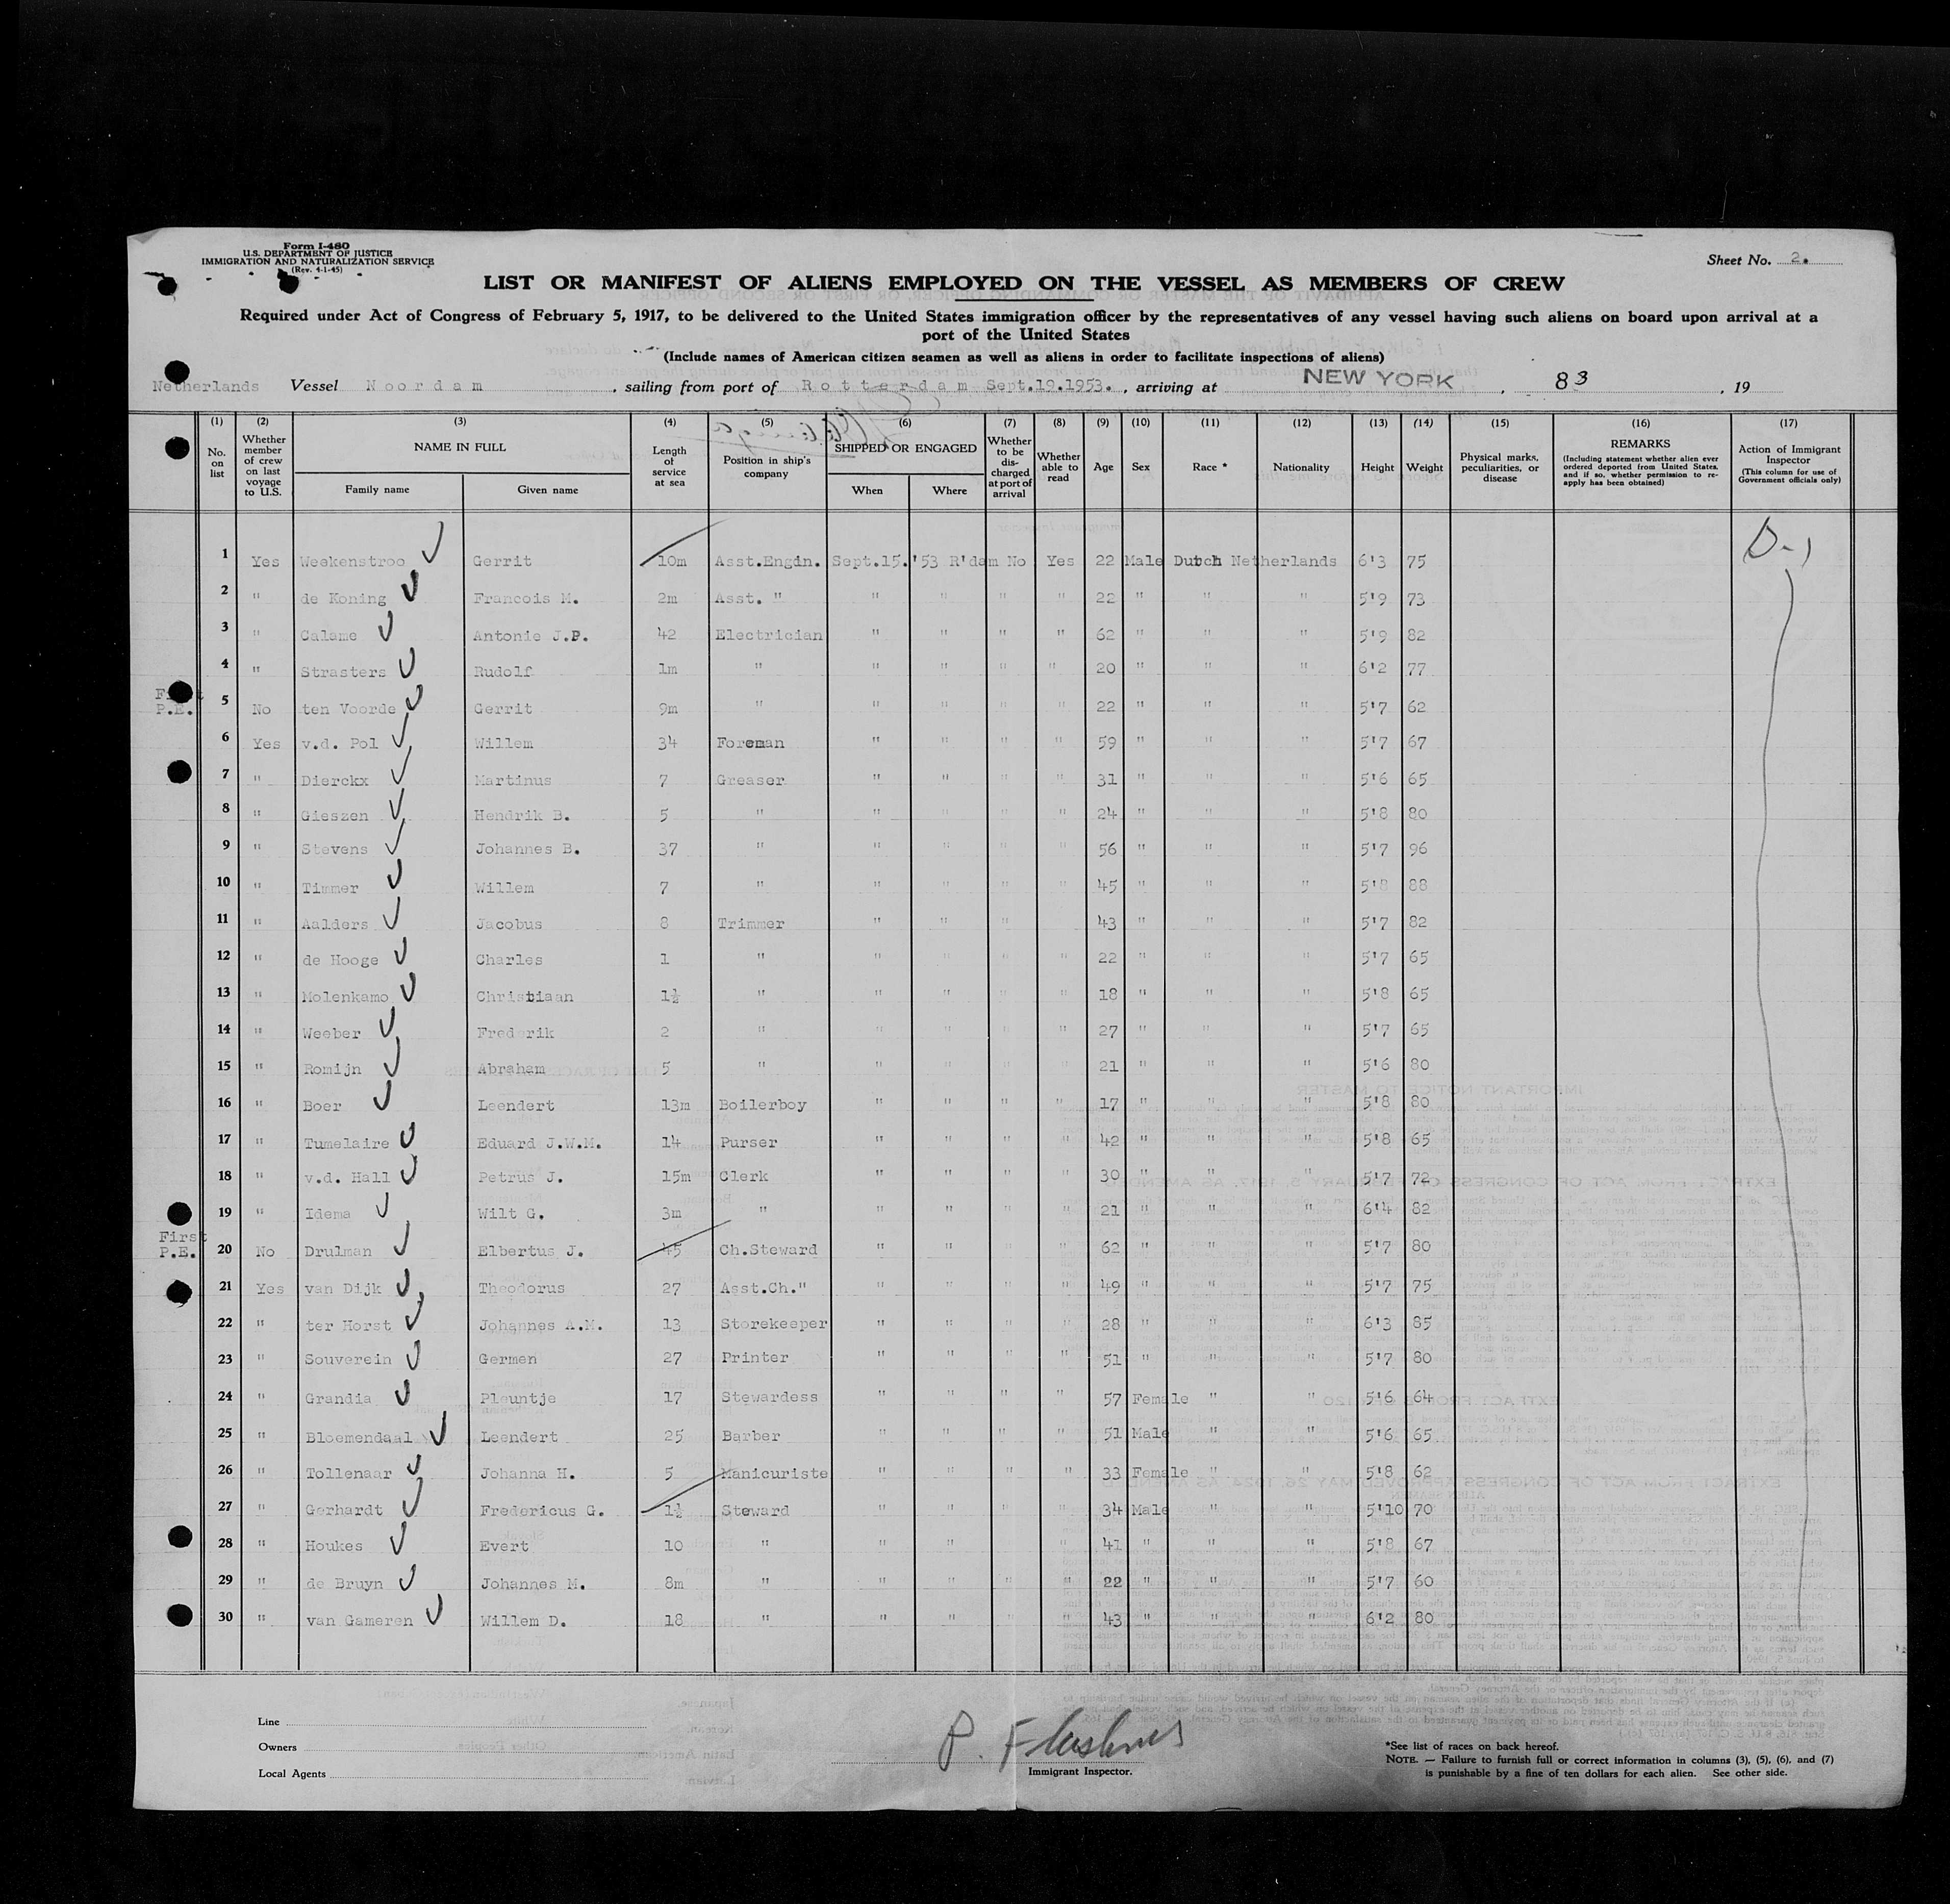 Form I-480
U.S. DEPARTMENT OF JUSTICE
IMMIGRATION AND NATURALIZATION SERVICE
(Rev. 4-1-45)
Sheet No. 2.
LIST OR MANIFEST OF ALIENS EMPLOYED ON THE VESSEL AS MEMBERS OF CREW
Required under Act of Congress of February 5, 1917, to be delivered to the United States immigration officer by the representatives of any vessel having such aliens on board upon arrival at a
port of the United States
(Include names of American citizen seamen as well as aliens in order to facilitate inspections of aliens)
Netherlands Vessel Noordam, sailing from port of Rotterdam Sept.19.1953., arriving at NEW YORK, 83, 19
(1) (2) (3) (4) (5) (6) (7) (8) (9) (10) (11) (12) (13) (14) (15) (16) (17)
No. on list
Whether member of crew on last voyage to U.S.
NAME IN FULL
Family name
Given name
Length of service at sea
Position in ship's company
SHIPPED OR ENGAGED
When
Where
Whether to be discharged at port of arrival
Whether able to read
Age
Sex
Race *
Nationality
Height
Weight
Physical marks, peculiarities, or disease
REMARKS
(Including statement whether alien ever ordered deported from United States, and if so, whether permission to re-apply has been obtained)
Action of Immigrant Inspector
(This column for use of Government officials only)
D-1
1 Yes Weekenstroo Gerrit 10m Asst.Engin. Sept.15.'53 R'dam No Yes 22 Male Dutch Netherlands 6'3 75
2 " de Koning Francois M. 2m Asst. " " " " " 22 " " " 5'9 73
3 " Calame Antonie J.P. 42 Electrician " " " " 62 " " " 5'9 82
4 " Strasters Rudolf 1m " " " " " 20 " " " 6'2 77
First
P.E. 5 No ten Voorde Gerrit 9m " " " " " 22 " " " 5'7 62
6 Yes v.d. Pol Willem 34 Foreman " " " " 59 " " " 5'7 67
7 " Dierckx Martinus 7 Greaser " " " " 31 " " " 5'6 65
8 " Gieszen Hendrik B. 5 " " " " " 24 " " " 5'8 80
9 " Stevens Johannes B. 37 " " " " " 56 " " " 5'7 96
10 " Timmer Willem 7 " " " " " 45 " " " 5'8 88
11 " Aalders Jacobus 8 Trimmer " " " " 43 " " " 5'7 82
12 " de Hooge Charles 1 " " " " " 22 " " " 5'7 65
13 " Molenkamo Christiaan 1½ " " " " " 18 " " " 5'8 65
14 " Weeber Frederik 2 " " " " " 27 " " " 5'7 65
15 " Romijn Abraham 5 " " " " " 21 " " " 5'6 80
16 " Boer Leendert 13m Boilerboy " " " " 17 " " " 5'8 80
17 " Tumelaire Eduard J.W.M. 14 Purser " " " " 42 " " " 5'8 65
18 " v.d. Hall Petrus J. 15m Clerk " " " " 30 " " " 5'7 72
19 " Idema Wilt G. 3m " " " " " 21 " " " 6'4 82
First
P.E. 20 No Drulman Elbertus J. 45 Ch.Steward " " " " 62 " " " 5'7 80
21 Yes van Dijk Theodorus 27 Asst.Ch." " " " " 49 " " " 5'7 75
22 " ter Horst Johannes A.M. 13 Storekeeper " " " " 28 " " " 6'3 85
23 " Souverein Germen 27 Printer " " " " 51 " " " 5'7 80
24 " Grandia Pleuntje 17 Stewardess " " " " 57 Female " " 5'6 64
25 " Bloemendaal Leendert 25 Barber " " " " 51 Male " " 5'6 65
26 " Tollenaar Johanna H. 5 Manicuriste " " " " 33 Female " " 5'8 62
27 " Gerhardt Fredericus G. 1½ Steward " " " " 34 Male " " 5'10 70
28 " Houkes Evert 10 " " " " " 41 " " " 5'8 67
29 " de Bruyn Johannes M. 8m " " " " " 22 " " " 5'7 60
30 " van Gameren Willem D. 18 " " " " " 43 " " " 6'2 80
Line
Owners
Local Agents
P.
Immigrant Inspector.
*See list of races on back hereof.
NOTE. — Failure to furnish full or correct information in columns (3), (5), (6), and (7)
is punishable by a fine of ten dollars for each alien. See other side.